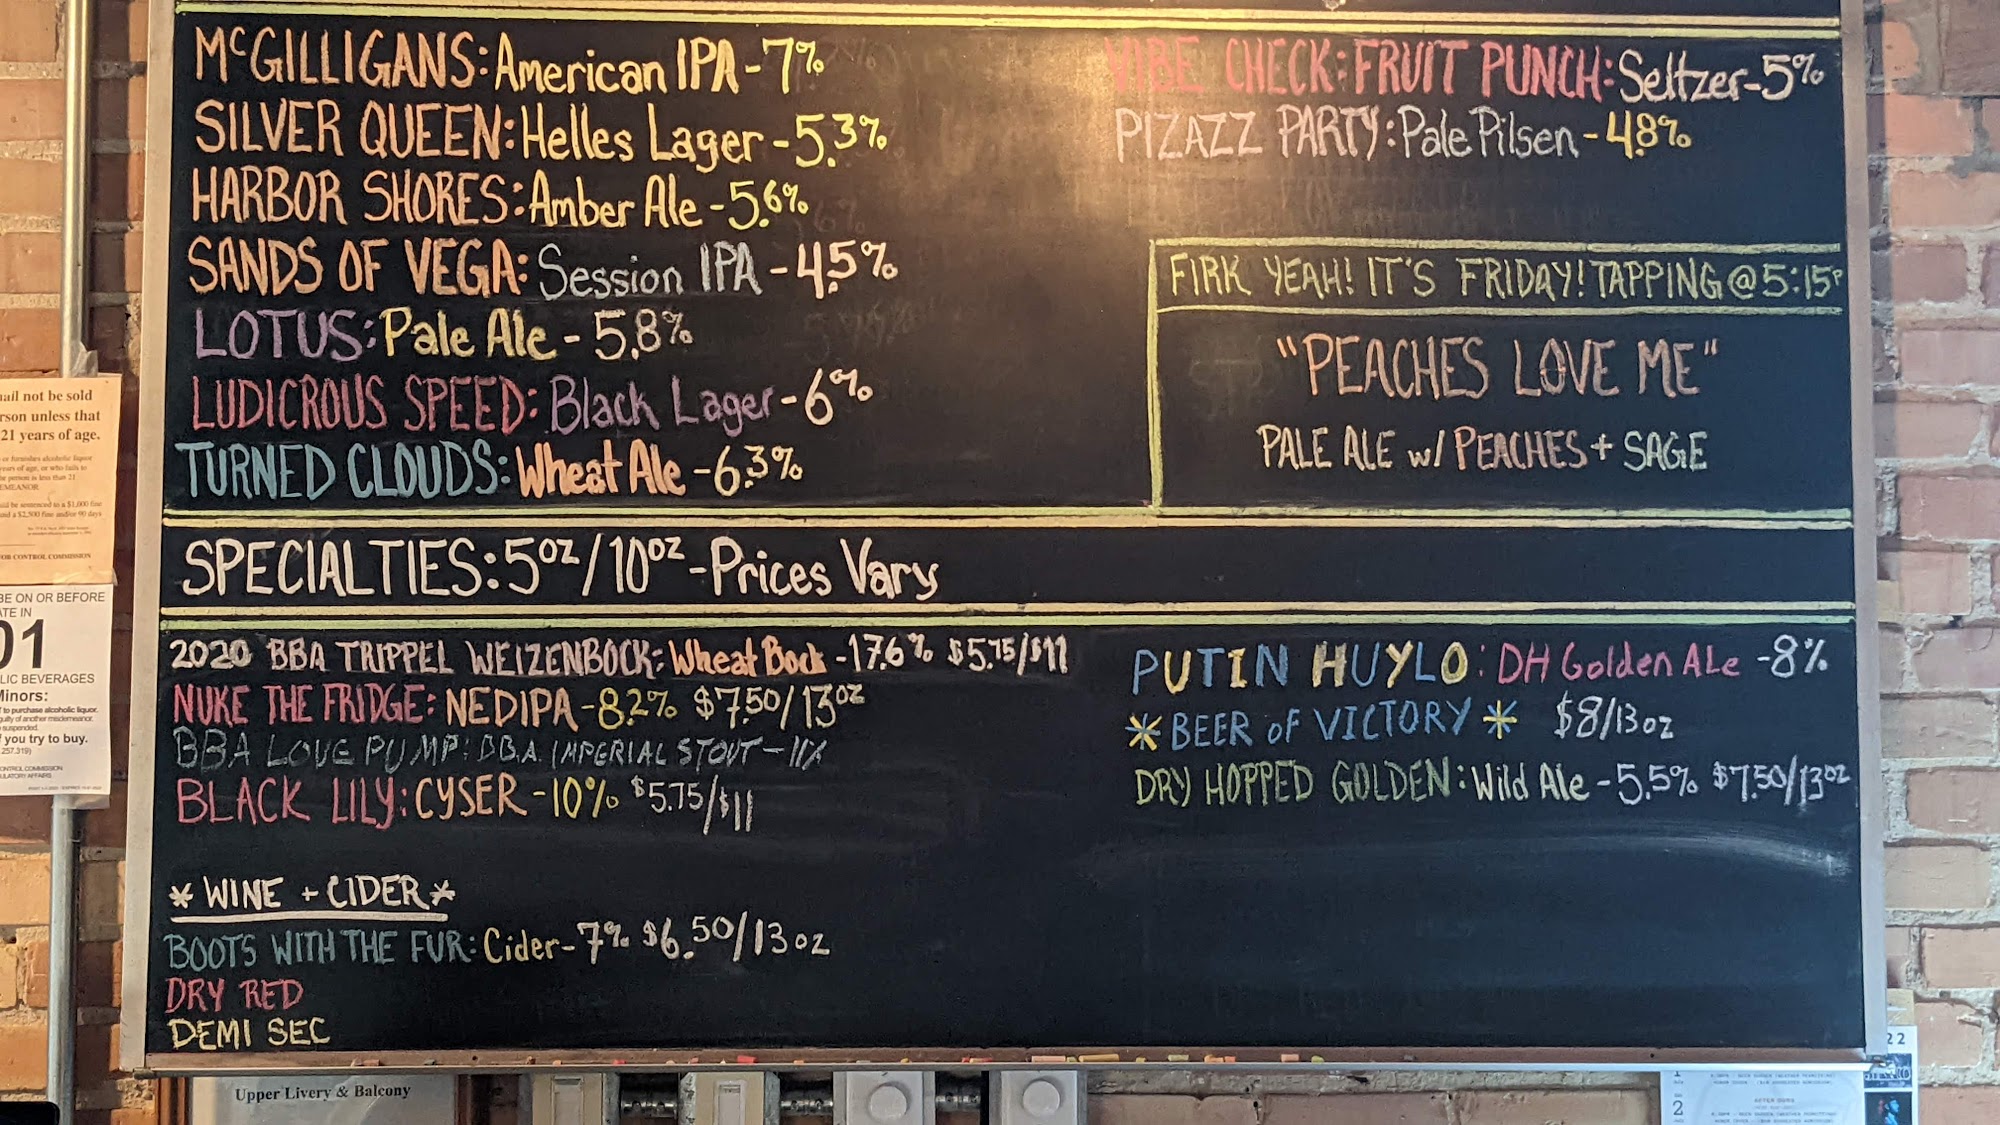 McGILLIGANS: American IPA - 7%
SILVER QUEEN: Helles Lager - 5.3%
HARBOR SHORES: Amber Ale - 5.6%
SANDS OF VEGA: Session IPA - 4.5%
LOTUS: Pale Ale - 5.8%
LUDICROUS SPEED: Black Lager - 6%
TURNED CLOUDS: Wheat Ale - 6.3%
VIBE CHECK: FRUIT PUNCH: Seltzer - 5%
PIZAZZ PARTY: Pale Pilsen - 4.8%
FIRK YEAH! IT'S FRIDAY! TAPPING @ 5:15P
"PEACHES LOVE ME"
PALE ALE w/ PEACHES + SAGE
SPECIALTIES: 5oz/10oz - Prices Vary
2020 BBA TRIPPEL WEIZENBOCK: Wheat Bock - 17.6% $5.75/$11
NUKE THE FRIDGE: NEDIPA - 8.2% $7.50/13oz
BBA LOVE PUMP: BBA IMPERIAL STOUT - 11%
BLACK LILY: CYSER - 10% $5.75/$11
PUTIN HUYLO: DH Golden Ale - 8%
*BEER OF VICTORY* $8/13oz
DRY HOPPED GOLDEN: Wild Ale - 5.5% $7.50/13oz
* WINE + CIDER *
BOOTS WITH THE FUR: Cider - 7% $6.50/13oz
DRY RED
DEMI SEC
hall not be sold
rson unless that
21 years of age.
OR CONTROL COMMISSION
BE ON OR BEFORE
ATE IN
01
LIC BEVERAGES
Minors:
to purchase alcoholic liquor.
guilty of another misdemeanor.
suspended.
f you try to buy.
257.319)
Upper Livery & Balcony
22
2